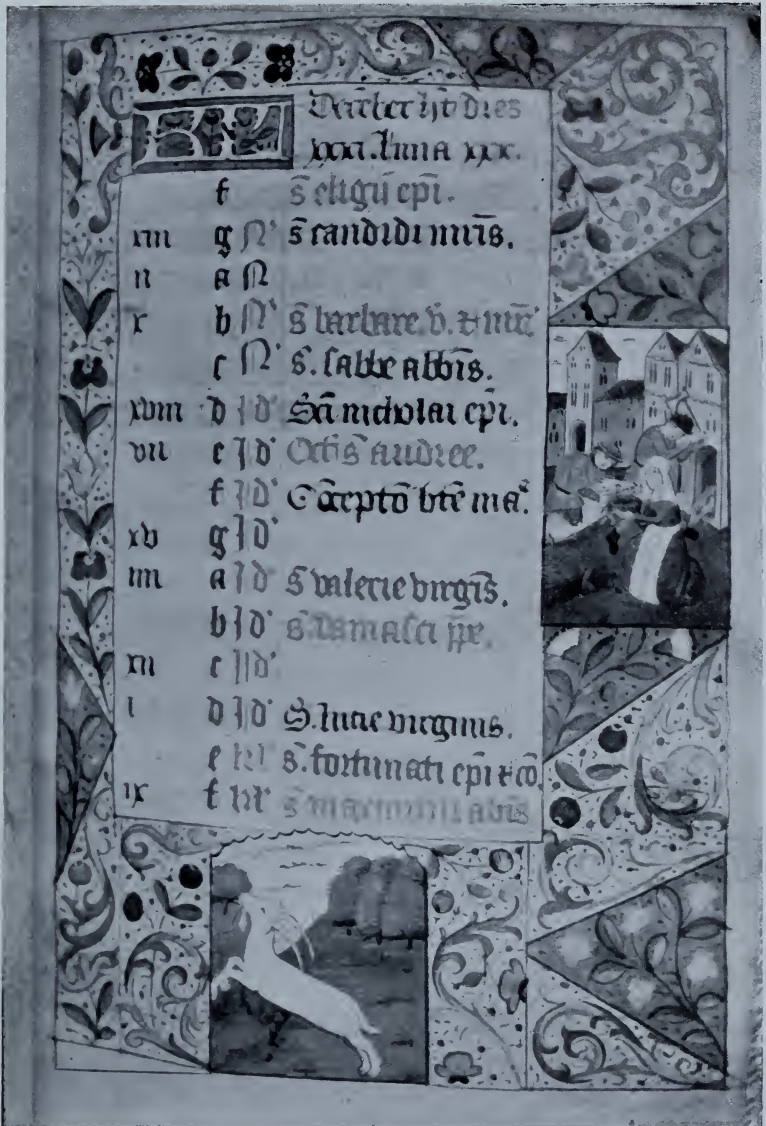 December ht dies
xxxi. luna xxx.
f s eligii epi.
xiii g N s candidi mris.
ii a N
x b N s barbare. v. & mr
c N s. sabbe abbis.
xviii d Id Sci nicholai epi.
vii e Id Oct s andree.
f Id Cocepto bte ma.
xv g Id
iiii a Id s valerie virgis.
b Id s damasci pe.
xii c Id
i d Id S. lucie virginis.
e kl s. fortunati epi & co.
ix f kl s maximini abis